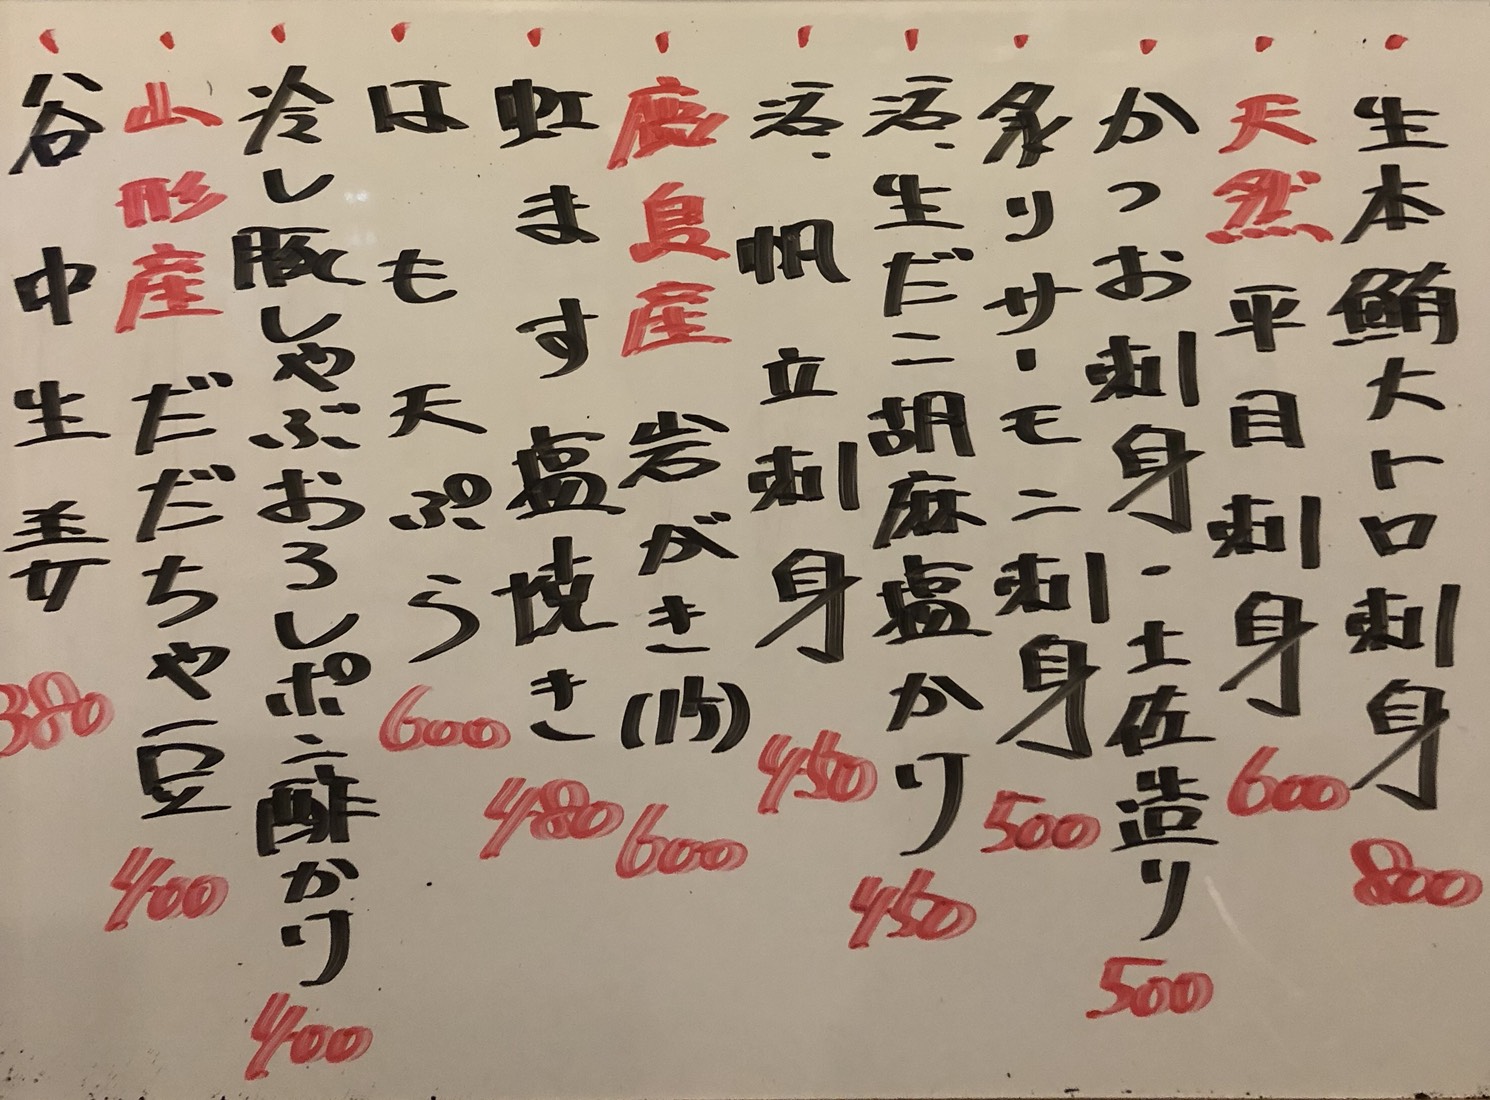 生本鮪大トロ刺身 800
天然 平目刺身 600
かつお刺身・土佐造り 500
炙りサーモン刺身 500
活、生だこ胡麻塩かけ 450
活、帆立刺身 450
鹿島産 岩がき(1ケ) 600
虹ます塩焼き 480
はも天ぷら 600
冷し豚しゃぶおろしポン酢かけ 400
山形産 だだちゃ豆 400
谷中生姜 380